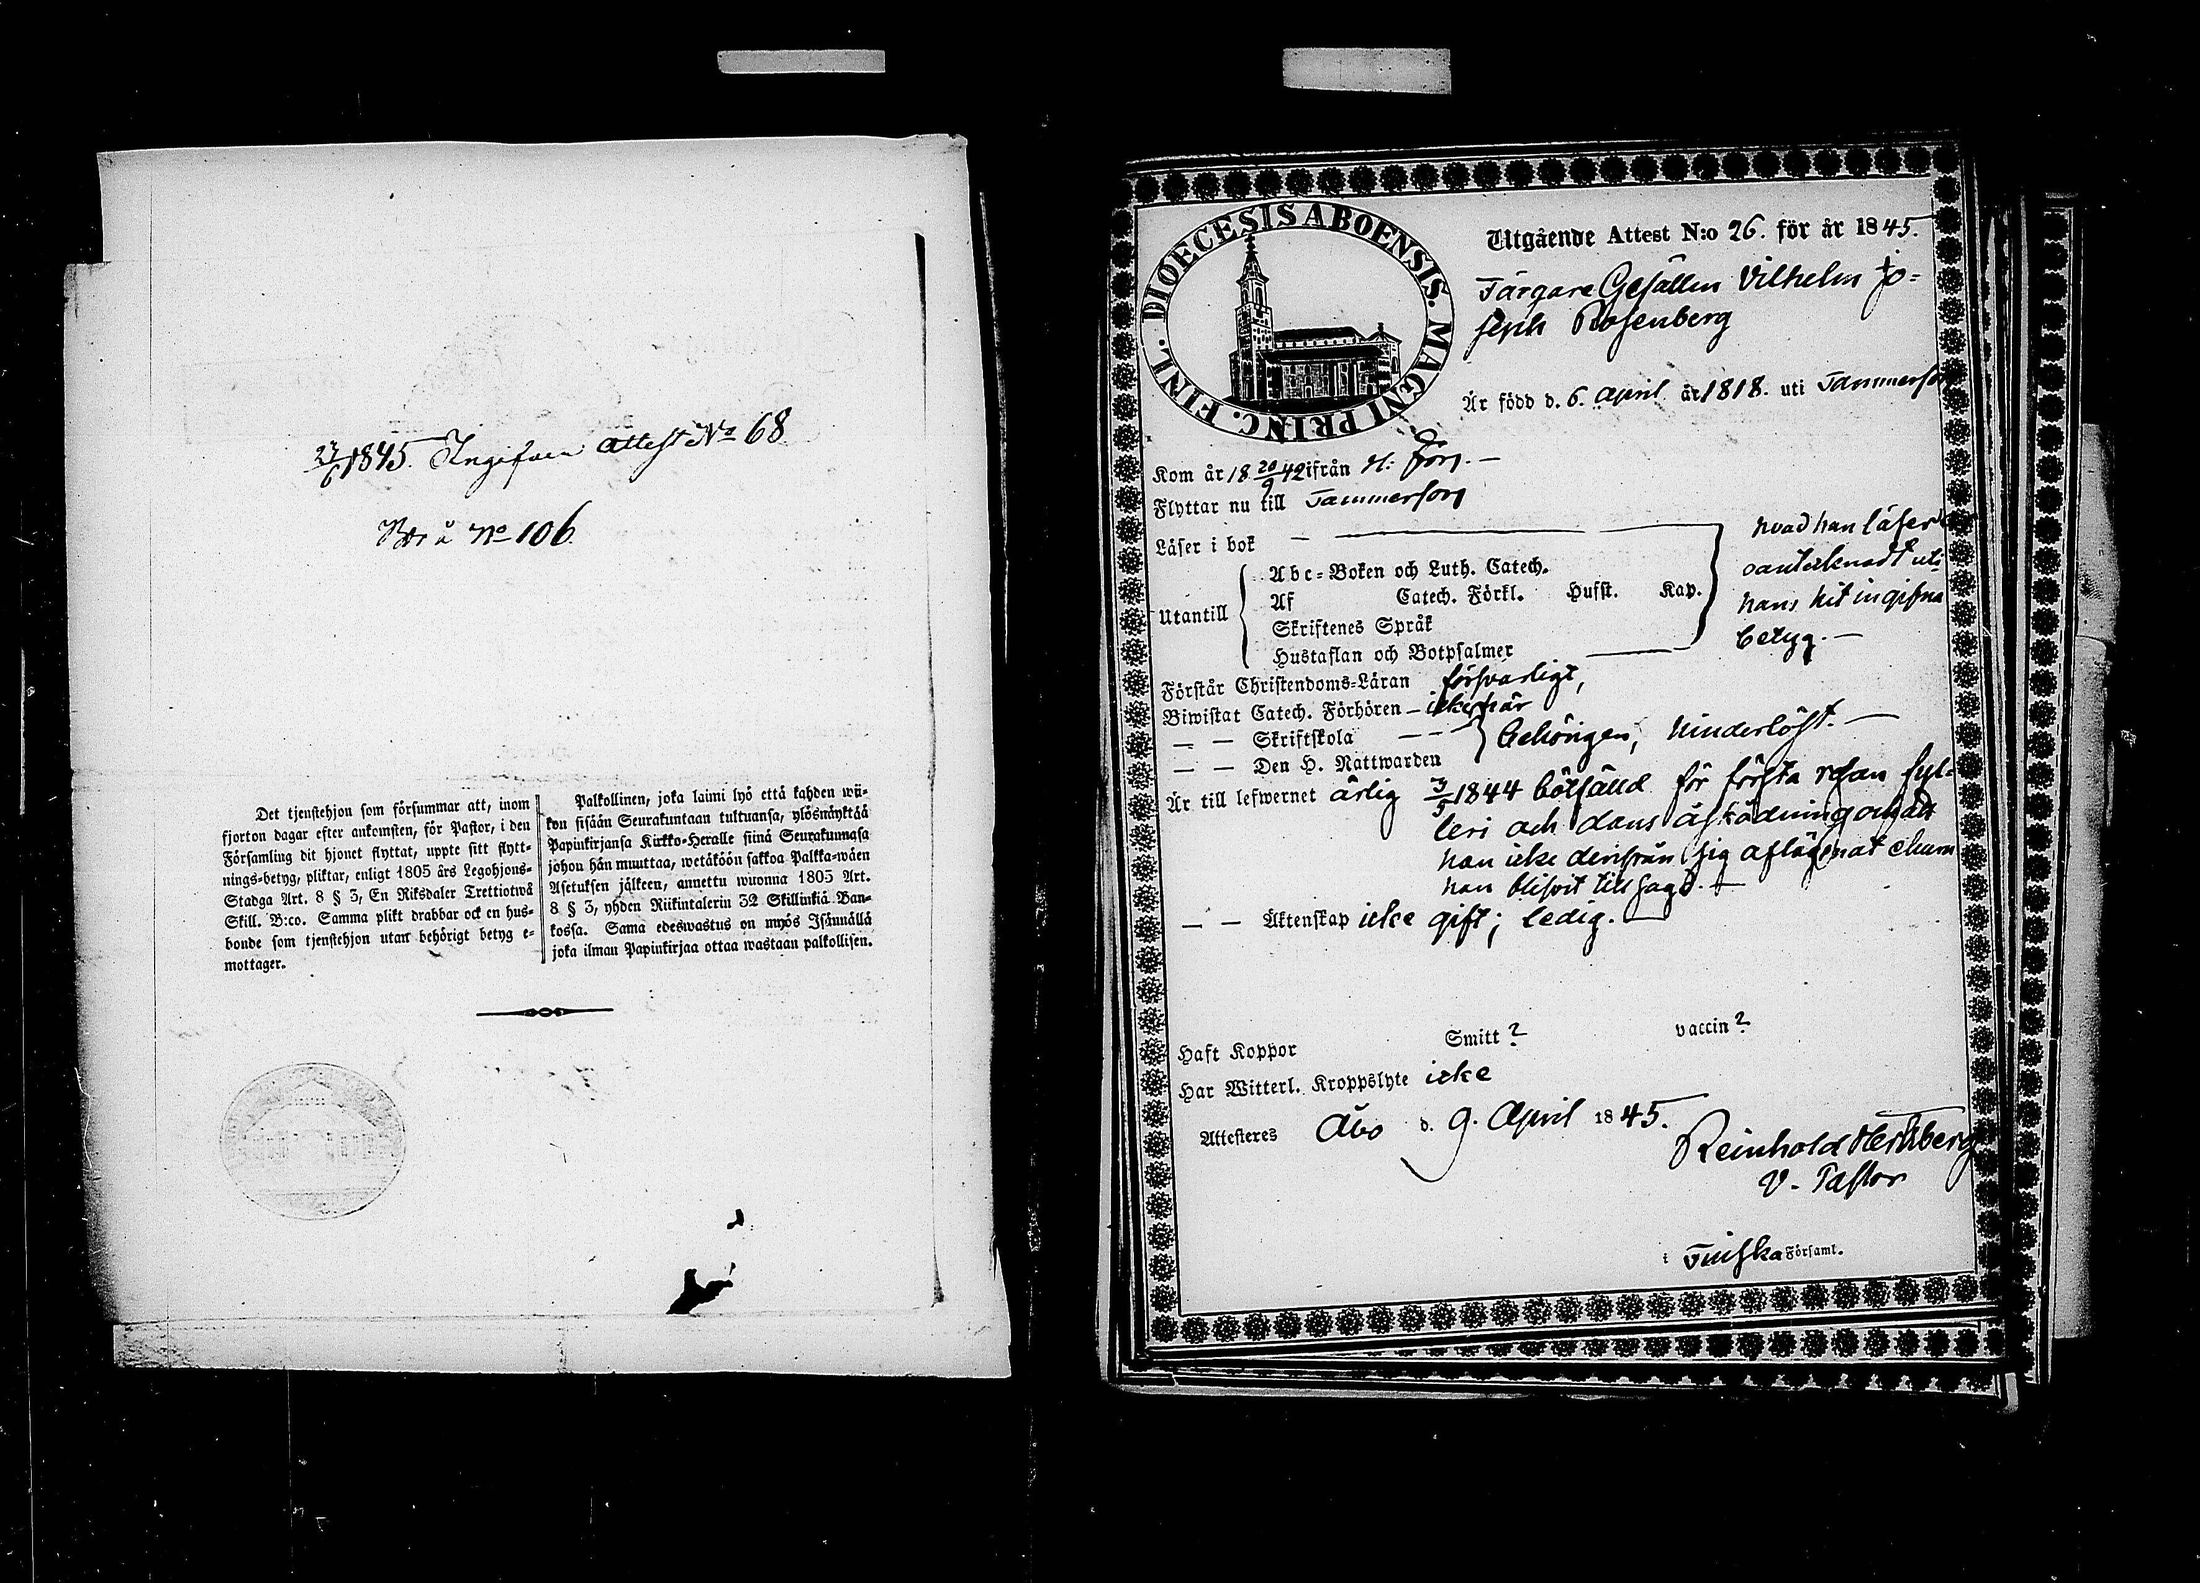 27/6 1845. Ingifven attest No 68
No 106.
Det tjenstehjon som försummar att, inom
fjorton dagar efter ankomsten, för Pastor, i den
Församling dit hjonet flyttat, uppte sitt flytt-
nings-betyg, pliktar, enligt 1805 års Legohjons-
Stadga Art. 8 § 3, En Riksdaler Trettiotwå
Skill. B:co. Samma plikt drabbar ock en hus-
bonde som tjenstehjon utan behörigt betyg e-
mottager.
Palkollinen, joka laimi lyö että kahden wii-
kon sisään Seurakuntaan tultuansa, ylösnäyktää
Papinkirjansa Kirkko-Heralle siinä Seurakunnasa
johon hän muuttaa, wetäköön sakkoa Palkka-wäen
Asetuksen jälkeen, annettu wuonna 1805 Art.
8 § 3, yhden Riikintalerin 32 Skillinkiä Ban-
kossa. Sama edeswastus on myös Isännällä
joka ilman Papinkirjaa ottaa wastaan palkollisen.
DIOECESIS ABOENSIS. MAGNI PRINC. FINL.
Utgående Attest N:o 26. för år 1845.
Färgare Gesällen Vilhelm Jo-
seph Rosenberg
Är född d. 6. April år 1818. uti Tammerfors
Kom år 18 20/9 42 ifrån H: förs. —
Flyttar nu till Tammerfors
Läser i bok
Utantill
Abc-Boken och Luth. Catech.
Af Catech. Förkl. Hufst. Kap.
Skriftenes Språk
Hustaflan och Botpsalmer
hvad han läser
oantecknadt uti
hans hit ingifna
betyg. —
Förstår Christendoms-Läran försvarligt,
Biwistat Catech. Förhören — icke här
— — Skriftskola — —
— — Den H. Nattwarden
behörigen, hinderlöst. —
Är till lefwernet ärlig 3/5 1844 bötfälld för första resan fyl-
leri och dans åskådning
han icke derifrån sig aflägsnat ehuru
han blifvit tillsagd. —
— — Äktenskap icke gift; ledig. —
Haft Koppor Smitt ? vaccin ?
Har Witterl. Kroppslyte icke
Attesteres Åbo d. 9. April 1845.
Reinhold Hertzberg
V. Pastor
i Finska Församl.